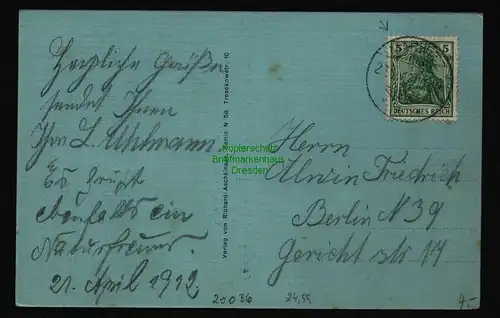 Herzliche Grüße
sendet Ihnen
Ihr L. Uhlmann
Es grüßt
ebenfalls ein
Naturfreund.
21. April 1912
Verlag von Richard N 58. Tresckowstr. 10
Kopierschutz
Briefmarkenhaus
Dresden
5 5
DEUTSCHES REICH
Herrn
Alwin Friedrich
Berlin N 39
Gericht str 17
20036 24,99
4.-